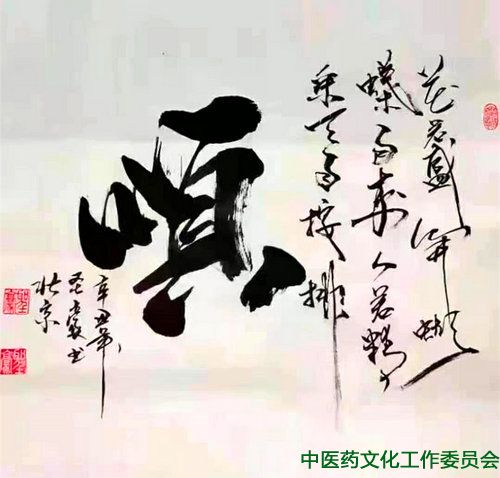 花若盛開蝴
蝶自来人若精
采天自按排
順
辛丑年
书
北京
中医药文化工作委员会